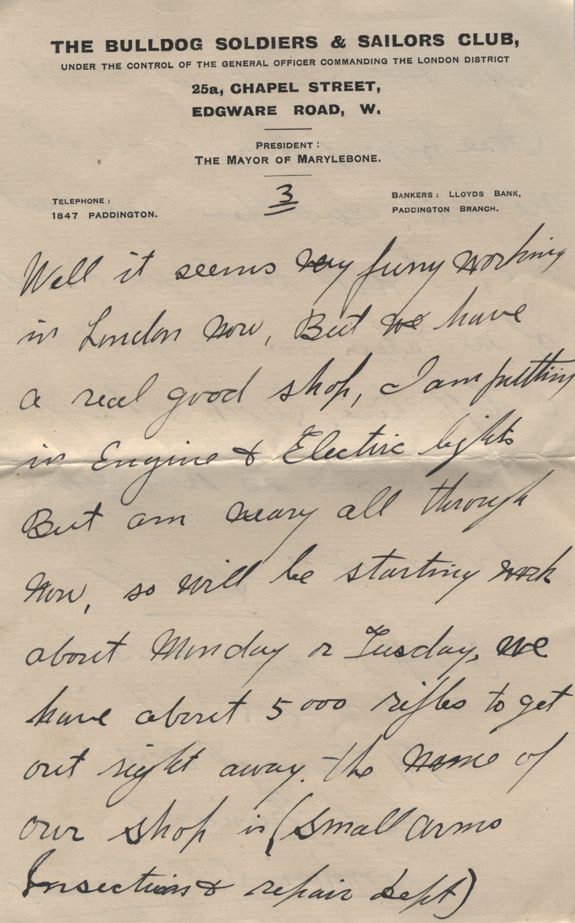 THE BULLDOG SOLDIERS & SAILORS CLUB,
UNDER THE CONTROL OF THE GENERAL OFFICER COMMANDING THE LONDON DISTRICT
25a, CHAPEL STREET,
EDGWARE ROAD, W.
PRESIDENT:
THE MAYOR OF MARYLEBONE.
TELEPHONE:
1847 PADDINGTON.
3
BANKERS: LLOYDS BANK,
PADDINGTON BRANCH.
Well it seems very funny working
in London now, But we have
a real good shop, I am putting
in Engine & Electric lights
But am neary all through
now, so will be starting work
about Monday or Tusday, we
have about 5000 rifles to get
out right away. the name of
our shop is (Small arms
Insection & repair dept)